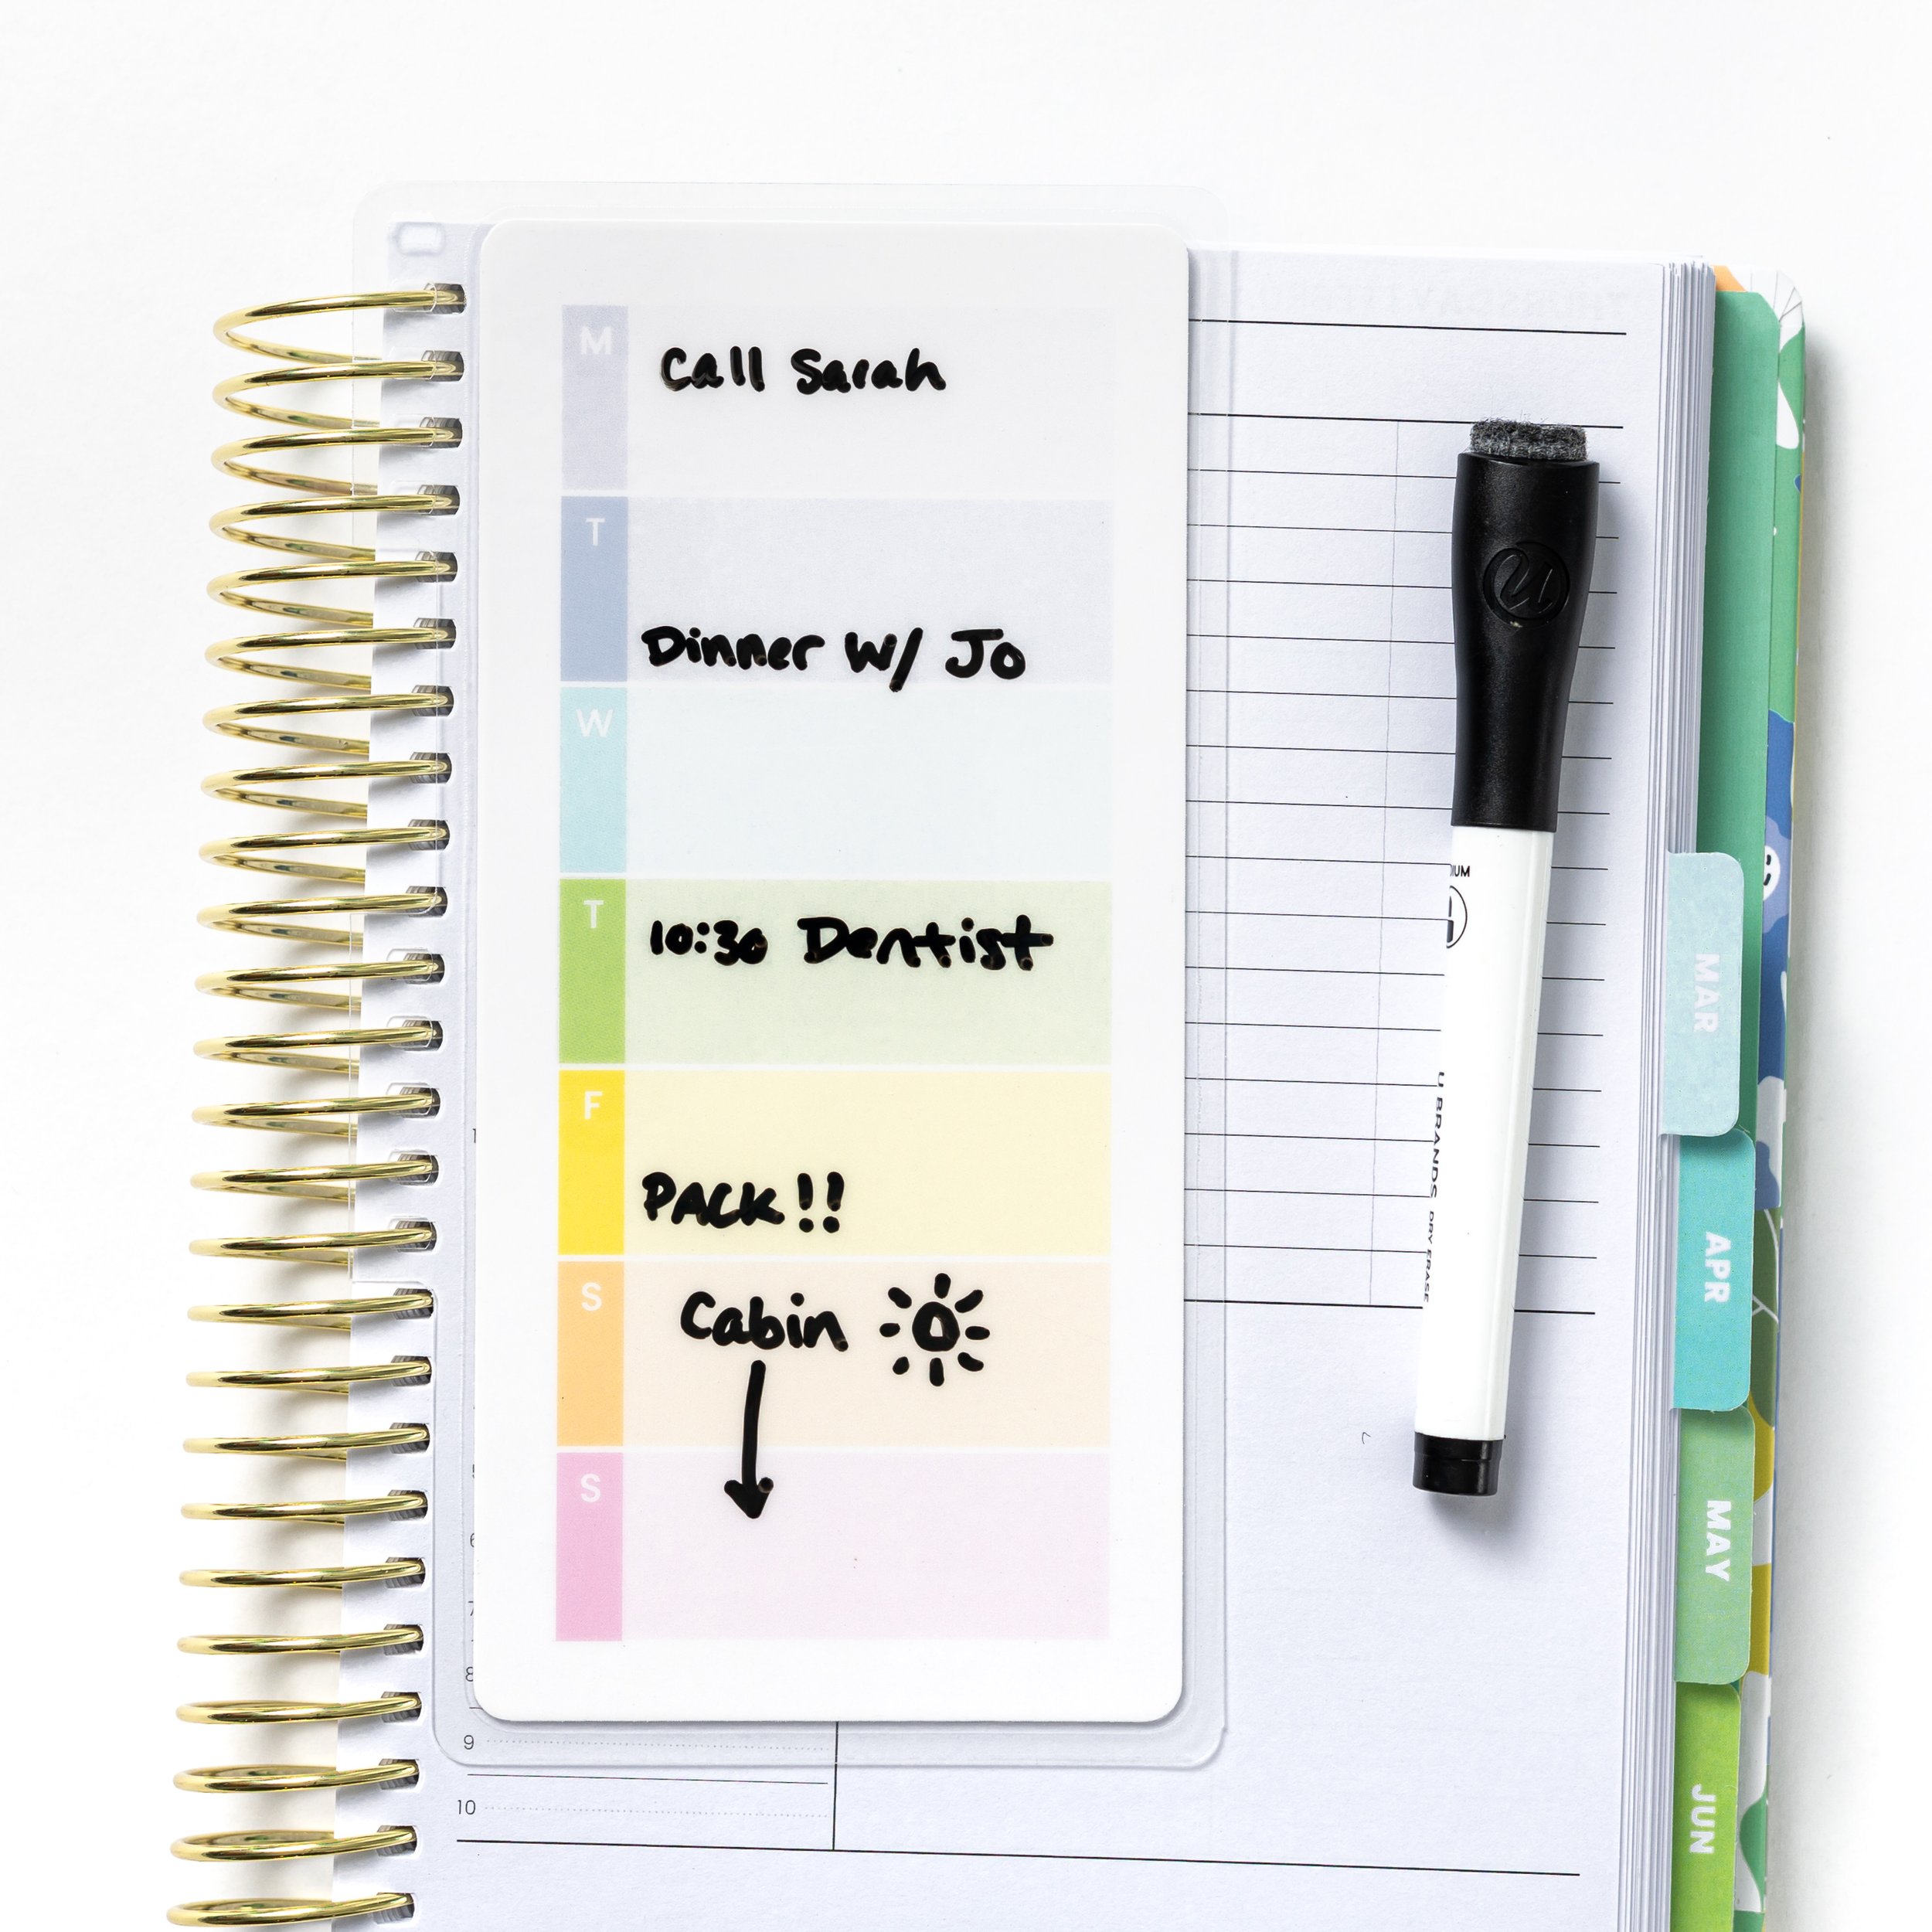 M
Call Sarah
T
Dinner w/ Jo
W
T
10:30 Dentist
F
PACK!!
S
Cabin
S
9
10
U BRANDS DRY ERASE
MAR
APR
MAY
JUN